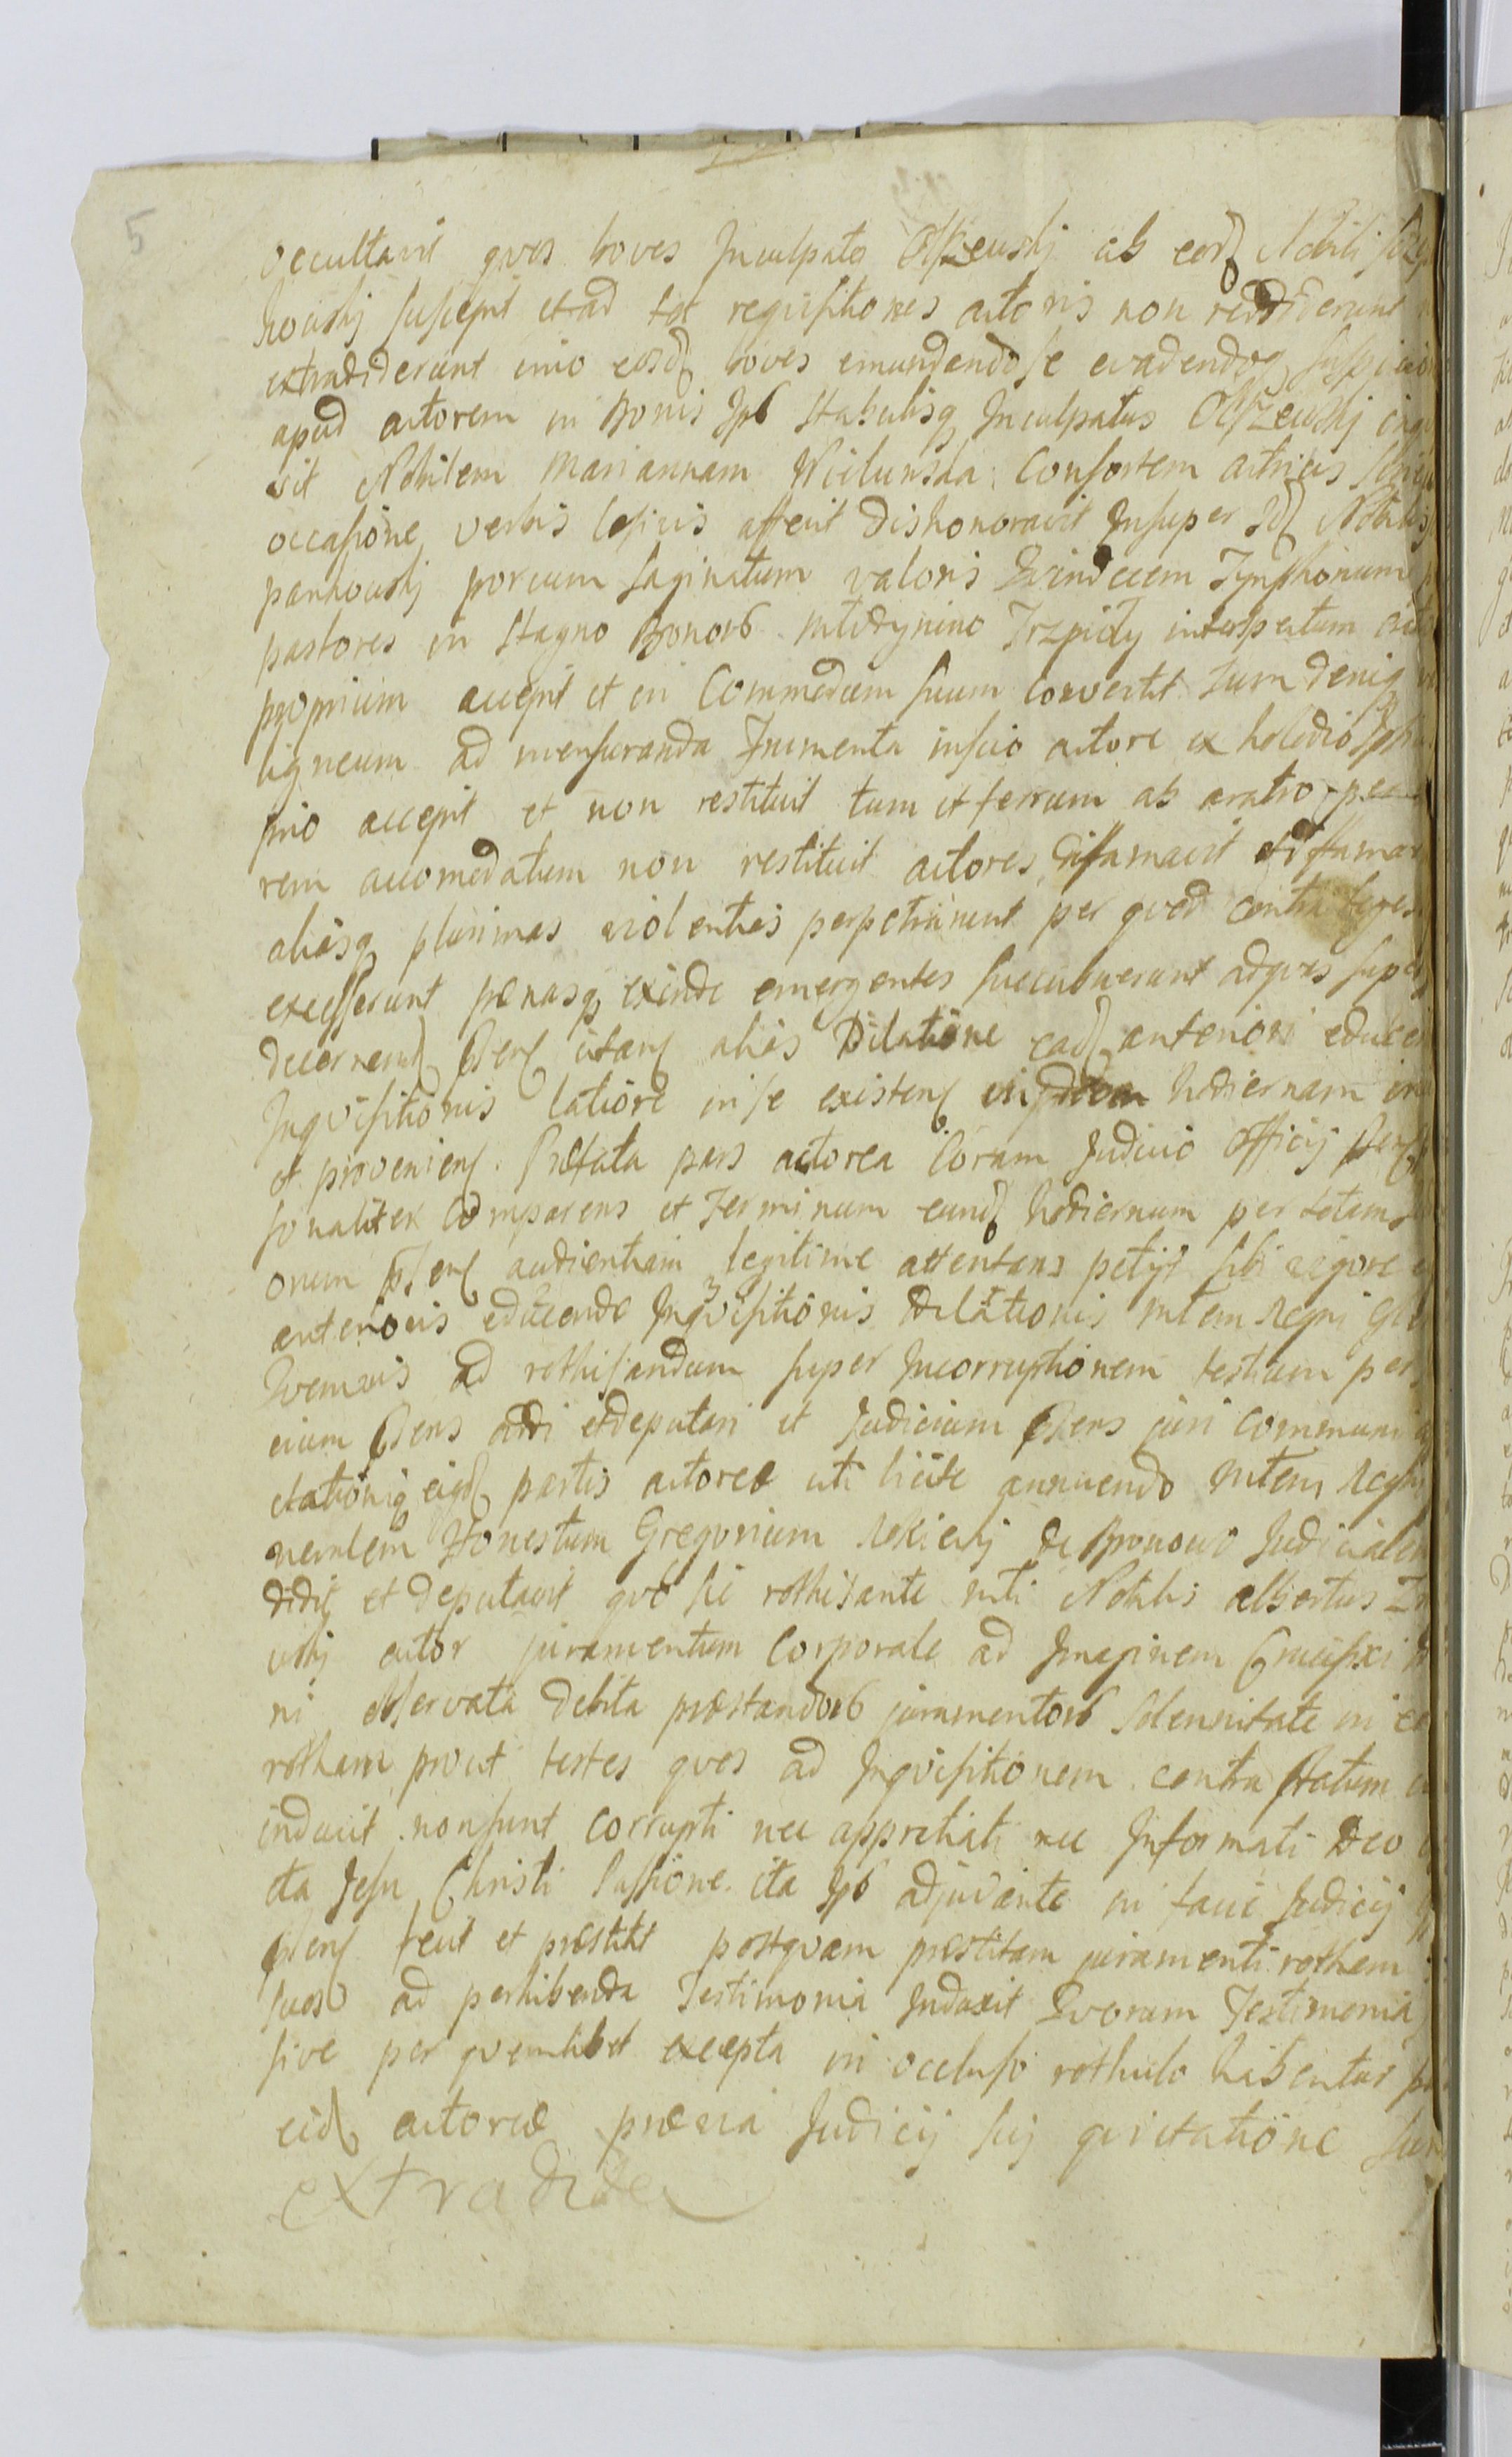 5
occultavit quos boves Inculpatus Olszewskj ab eod Nobili
kowskj suscepit et ad tot requisitiones actoris non reddiderunt
extradiderunt imo eosd boves emundendo se evadendoq suspicio
apud actorem in Bonis Ips stabulisq Inculpatus Olszewskj
sit Nobilem Mariannam Wielunska Consortem actricis
occasione verbis lesivis affecit dishonoravit Insuper Id Nobilis
pankowskj porcum saginatum valoris Quindecem Tynfhonum
pastores in stagno Bonorb Mlodynino Trzpioly interfectum
proprium accepit et in Commodum suum convertit tum deniq
ligneum ad mensuranda Frumenta inscio actore ex holedio
prio accepit et non restituit tum et ferrum ab aratro
rem accomodatum non restituit actores diffamavit et diffamar
aliasq plurimas violentias perpetrarunt per quod contra leges
excesserunt penasq exinde emergentes succubuerunt adquas
decernend Psens citans alias Dilatione ead anteriori educen
Inquisitionis latiore in se existen hodiernam
et provenien. Præfata pars actorea Coram Judicio Officij Psens
sonaliter Comparens et Terminum eund hodiernum per totam
orum Psens audientiam legitime attentans petijt sibi vigore
anterioris educendæ Inquisitionis Dilationis Mtem Regni
Quemvis ad rothisandum super Incorruptionem testium per
cium Psens addi et deputari et Judicium Psens juri communi
ctationiq eisd partis actoreæ uti licite annuendo Mtem Regni
neralem Honestum Gregorium Rokickj de Bronowo Judicialem
didit et deputavit quo sic rothisante Mti Nobilis Albertus
wskj actor juramentum Corporale ad Imaginem Crucifixi
ni observata debita præstandorb juramentorb solennitate in
rotham prout testes quos ad Inquisitionem contra Psatum
induxit non sunt corrupti nec appretiati nec Informati Deo
cta Jesu Christi Passione ita Ips adjuvante in facie Judicij
Psens fecit et præstitit postquam præstitam juramenti rotham
suos ad perhibenda Testimonia Induxit Quorum Testimonia
sive per quemlibet excepta in occluso rothulo habentur
eid actoreæ prævia Judicij sij quietatione
extradide